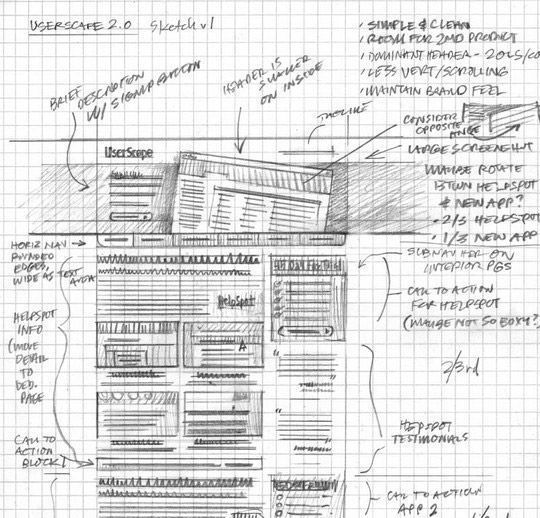 USERSCAPE 2.0 Sketch v1
· SIMPLE & CLEAN
· ROOM FOR 2ND PRODUCT
· DOMINANT HEADER - 2COLS/CO
· LESS VERT/SCROLLING
· MAINTAIN BRAND FEEL
BRIEF DESCRIPTION
W/ SIGNUP BUTTON
HEADER IS
SMALLER
ON INSIDE
TAGLINE
CONSIDER
OPPOSITE
ANGLE
UserScape
LARGE SCREENSHOT
MAYBE ROTATE
BTWN HELPSPOT
& NEW APP?
· 2/3 HELPSPOT
· 1/3 NEW APP
HORIZ NAV
ROUNDED
EDGES,
WIDE AS TEXT
AREA
SUBNAV HERE ON
INTERIOR PGS
CALL TO ACTION
FOR HELPSPOT
(MAYBE NOT SO BOXY?)
HelpSpot
HELPSPOT
INFO
(MOVE
DETAIL
TO
DED.
PAGE
A
2/3rd
HELPSPOT
TESTIMONIALS
CALL TO
ACTION
BLOCK
CALL TO ACTION
APP 2